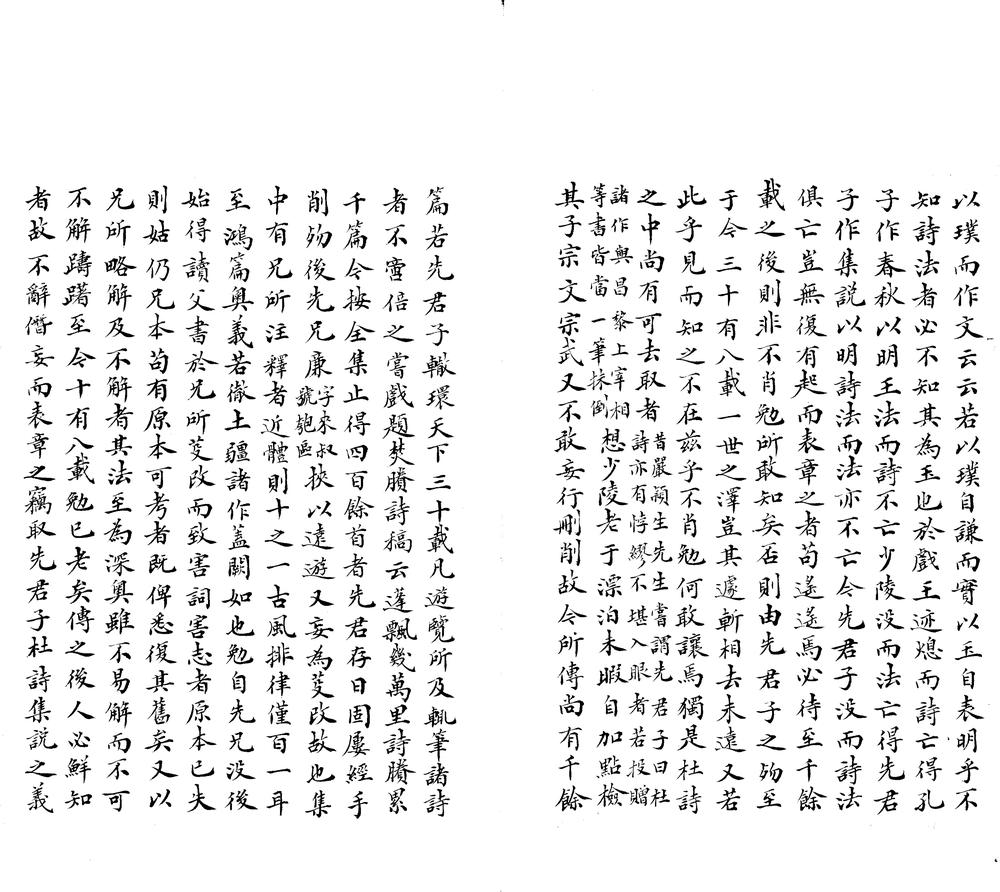 以璞而作文云云若以璞自謙而實以玉自表明乎不
知詩法者必不知其為玉也於戲王迹熄而詩亡得孔
子作春秋以明王法而詩不亡少陵没而法亡得先君
子作集説以明詩法而法亦不亡今先君子没而詩法
俱亡豈無復有起而表章之者苟遂遂焉必待至千餘
載之後則非不肖勉所敢知矣否則由先君子之歾至
于今三十有八載一世之澤豈其遽斬相去未遠又若
此乎見而知之不在茲乎不肖勉何敢讓焉獨是杜詩
之中尚有可去取者
昔嚴穎生先生嘗謂先君子曰杜
詩亦有悖繆不堪入眼者若投贈
諸作與昌黎上宰相
等書皆當一筆抹倒
想少陵老于漂泊未暇自加點檢
其子宗文宗武又不敢妄行刪削故今所傳尚有千餘
篇若先君子轍環天下三十載凡遊覽所及輒筆諸詩
者不啻倍之嘗戲題焚賸詩稿云蓬飄幾萬里詩賸累
千篇今按全集止得四百餘首者先君存日固屢經手
削歾後先兄廉
字來叔
號匏區
挾以遠遊又妄為芟改故也集
中有兄所注釋者近體則十之一古風排律僅百一耳
至鴻篇奥義若徹土疆諸作蓋闕如也勉自先兄没後
始得讀父書於兄所芟改而致害詞害志者原本已失
則姑仍兄本苟有原本可考者既俾悉復其舊矣又以
兄所略解及不解者其法至為深奥雖不易解而不可
不解躊躇至今十有八載勉已老矣傳之後人必鮮知
者故不辭僭妄而表章之竊取先君子杜詩集説之義